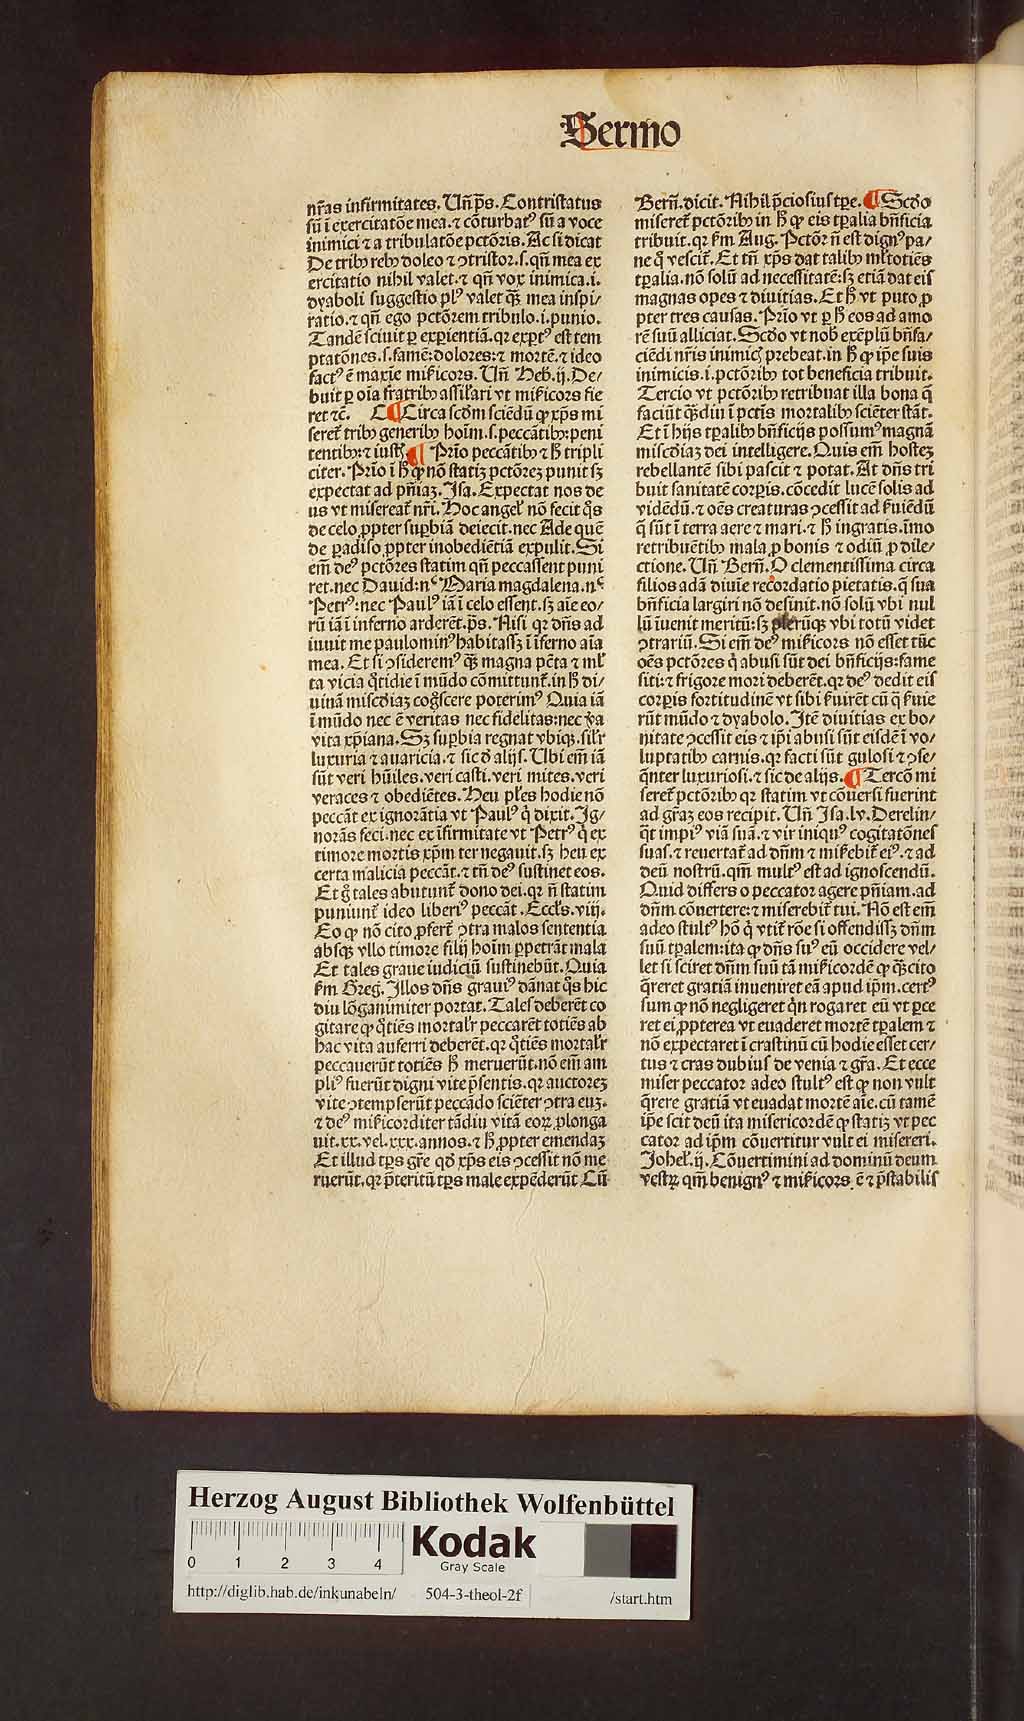 Sermo
nr̃as infirmitates. Vñ p̃s. Contristatus
sũ ĩ exercitatõe mea. ⁊ cõturbatꝰ sũ a voce
inimici ⁊ a tribulatõe pctõris. Ac si dicat
De tribꝰ rebꝰ doleo ⁊ ꝯtristor. s. qñ mea ex
ercitatio nihil valet. ⁊ qñ vox inimica .i.
dyaboli suggestio plꝰ valet q̃ꝫ mea inspi/
ratio. ⁊ qñ ego pctõrem tribulo .i. punio.
Tandẽ sciuit ꝑ experientiã. qꝛ expertꝰ est tem
ptatõnes. s. famẽ: dolores: ⁊ mortẽ. ⁊ ideo
factꝰ ẽ maxie miẜicors. Vñ Heb. ij. De/
buit ꝑ oĩa fratribꝰ assilari vt miẜicors fie
ret ⁊c̃. C ¶ Circa scd̃m sciẽdũ ꝙ xp̃s mi
seret̃ tribꝰ generibꝰ hoĩm. s. peccãtibꝰ: peni
tentibꝰ: ⁊ iustꝭ ¶ Prĩo peccãtibꝰ ⁊ ꝧ tripli
citer. Prĩo ĩ ꝧ ꝙ nõ statiꝫ pctõreꝫ punit sꝫ
expectat ad pñiaꝫ. Isa. Expectat nos de
us vt misereat̃ nr̃i. Hoc angelꝭ nõ fecit q̃s
de celo ꝓpter suꝑbiã deiecit. nec Ade quẽ
de ꝑadiso ꝓpter inobediẽtiã expulit. Si
em̃ deꝰ pctõres statim qñ peccassent puni
ret. nec Dauid: nec̃ Maria magdalena. nec̃
Petrꝰ: nec Paulꝰ iã ĩ celo essent. sꝫ aĩe eo/
rũ iã ĩ inferno arderẽt. p̃s. Nisi qꝛ dñs ad
iuuit me paulominꝰ habitassꝫ ĩ ĩferno aĩa
mea. Et si ꝯsideremꝰ q̃ꝫ magna pctã ⁊ ml̃
ta vicia q̃tidie ĩ mũdo cõmittunt̃. in ꝧ di/
uinã miscd̃iaꝫ cogsc̃ere poterimꝰ Quia iã
ĩ mũdo nec ẽ veritas nec fidelitas: nec ṽa
vita xp̃iana. Sꝫ suꝑbia regnat vbiqꝫ. sil̃r
luxuria ⁊ auaricia. ⁊ sic d̃ alijs. Vbi em̃ iã
sũt veri hũiles. veri casti. veri mites. veri
veraces ⁊ obediẽtes. Heu pl̃es hodie nõ
peccãt ex ignorãtia vt Paulꝰ q̃ dixit. Ig/
norãs feci. nec ex ĩfirmitate vt Petrꝰ q̃ ex
timore mortis xp̃m ter negauit. sꝫ heu ex
certa malicia peccãt. ⁊ tñ deꝰ sustinet eos.
Et g̃ tales abutunt̃ dono dei. qꝛ ñ statim
puniunt̃ ideo liberiꝰ peccãt. Eccl̃s. viij.
Eo ꝙ nõ cito ꝓfert̃ ꝯtra malos sententia
absqꝫ vllo timore filij hoĩm ꝑpetrãt mala
Et tales graue iudiciũ sustinebũt. Quia
ẜm Greg. Illos dñs grauiꝰ dãnat q̃s hic
diu lõganimiter portat. Tales deberẽt co
gitare ꝙ q̃tiẽs mortal̃r peccarẽt totiẽs ab
hac vita auferri deberẽt. qꝛ q̃tiẽs mortal̃r
peccauerũt totiẽs ꝧ meruerũt. nõ em̃ am
pliꝰ fuerũt digni vite p̃sentis. qꝛ auctoreꝫ
vite ꝯtempserũt peccãdo sciẽter ꝯtra euꝫ.
⁊ deꝰ miẜicorditer tãdiu vitã eoꝝ ꝓlonga
uit. xx. vel. xxx. annos. ⁊ ꝧ ꝓpter emendaꝫ
Et illud tp̃s gr̃e qd̃ xp̃s eis ꝯcessit nõ me
ruerũt. qꝛ p̃teritũ tp̃s male expẽderũt Cũ
Berñ. dicit. Nihil p̃ciosius tp̃e. ¶ Scd̃o
miseret̃ pctõribꝰ in ꝧ ꝙ eis tp̃alia bñficia
tribuit. qꝛ ẜm Aug. Pctõr ñ est dignꝰ pa/
ne q̃ vescit̃. Et tñ xp̃s dat talibꝰ ml̃totiẽs
tp̃alia. nõ solũ ad necessitatẽ: sꝫ etiã dat eis
magnas opes ⁊ diuitias. Et ꝧ vt puto ꝓ
pter tres causas. Prĩo vt ꝑ ꝧ eos ad amo
rẽ suũ alliciat. Scd̃o vt nob̃ exẽplũ bñfa/
ciẽdi nr̃is inimicꝭ prebeat. in ꝧ ꝙ ip̃e suis
inimicis .i. pctõribꝰ tot beneficia tribuit.
Tercio vt pctõribꝰ retribuat illa bona q̃
faciũt q̃ꝫdiu ĩ pctis̃ mortalibꝰ sciẽter stãt.
Et ĩ hijs tp̃alibꝰ bñficijs possumꝰ magnã
miscd̃iaꝫ dei intelligere. Quis em̃ hosteꝫ
rebellantẽ sibi pascit ⁊ potat. At dñs tri
buit sanitatẽ corꝑis. cõcedit lucẽ solis ad
vidẽdũ. ⁊ oẽs creaturas ꝯcessit ad ẜuiẽdũ
q̃ sũt ĩ terra aere ⁊ mari. ⁊ ꝧ ingratis. ĩmo
retribuẽtibꝰ mala ꝓ bonis ⁊ odiũ ꝓ dile/
ctione. Vñ Berñ. O clementissima circa
filios adã diuĩe recordatio pietatis. q̃ sua
bñficia largiri nõ desinit. nõ solũ vbi nul
lũ iuenit meritũ: sꝫ plerũqꝫ vbi totũ videt
ꝯtrariũ. Si em̃ deꝰ miẜicors nõ esset tũc
oẽs pctõres q̃ abusi sũt dei bñficijs: fame
siti: ⁊ frigore mori deberẽt. qꝛ deꝰ dedit eis
corꝑis fortitudinẽ vt sibi ẜuirẽt cũ q̃ ẜuie
rũt mũdo ⁊ dyabolo. Itẽ diuitias ex bo/
nitate ꝯcessit eis ⁊ ip̃i abusi sũt eisdẽ ĩ vo/
luptatibꝰ carnis. qꝛ facti sũt gulosi ⁊ ꝯse/
q̃nter luxuriosi. ⁊ sic de alijs. ¶ Tercõ mi
seret̃ pctõribꝰ qꝛ statim vt cõuersi fuerint
ad gr̃aꝫ eos recipit. Vñ Isa. lv. Derelin/
q̃t impiꝰ viã suã. ⁊ vir iniquꝰ cogitatõnes
suas. ⁊ reuertat̃ ad dñm ⁊ miẜebit̃ eiꝰ. ⁊ ad
deũ nostrũ. qm̃ multꝰ est ad ignoscendũ.
Quid differs o peccator agere pñiam. ad
dñm cõuertere: ⁊ miserebit̃ tui. Nõ est em̃
adeo stultꝰ hõ q̃ vtit̃ rõe si offendissꝫ dñm
suũ tp̃alem: ita ꝙ dñs suꝰ eũ occidere vel/
let si sciret dñm suũ tã miẜicordẽ ꝙ q̃ꝫcito
q̃reret gratiã inueniret eã apud ip̃m. certꝰ
sum ꝙ nõ negligeret q̃n rogaret eũ vt ꝑce
ret ei ꝓpterea vt euaderet mortẽ tp̃alem ⁊
nõ expectaret ĩ crastinũ cũ hodie esset cer/
tus ⁊ cras dubius de venia ⁊ gr̃a. Et ecce
miser peccator adeo stultꝰ est ꝙ non vult
q̃rere gratiã vt euadat mortẽ aĩe. cũ tamẽ
ip̃e scit deũ ita misericordẽ ꝙ statiꝫ vt pec
cator ad ip̃m cõuertitur vult ei misereri.
Johel̃. ij. Cõuertimini ad dominũ deum
vestꝝ qm̃ benignꝰ ⁊ miẜicors ẽ ⁊ p̃stabilis
Herzog August Bibliothek Wolfenbüttel
0 1 2 3 4
Kodak
Gray Scale
http://diglib.hab.de/inkunabeln/ 504-3-theol-2f /start.htm